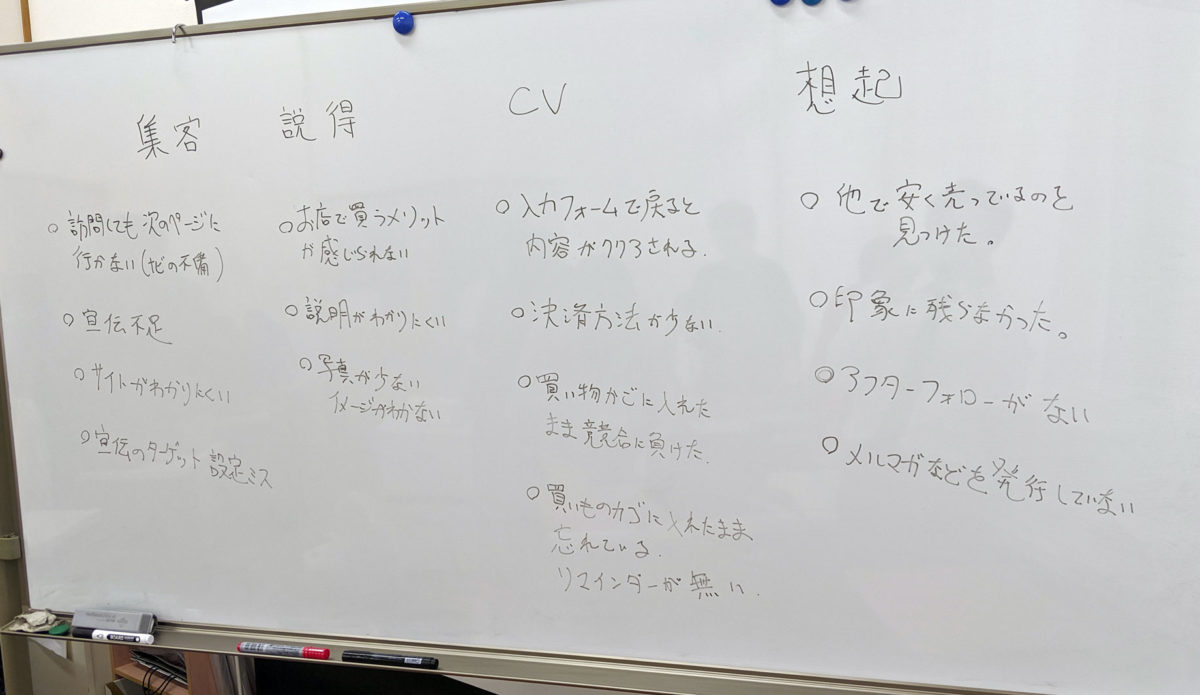 集客
訪問しても次のページに
行かない(ナビの不備)
宣伝不足
サイトがわかりにくい
宣伝のターゲット設定ミス
説得
お店で買うメリット
が感じられない
説明がわかりにくい
写真が少ない
イメージがわかない
CV
入力フォームで戻ると
内容がクリアされる.
決済方法が少ない.
買い物かごに入れた
まま競合に負けた.
買いものカゴに入れたまま
忘れている.
リマインダーが無い.
想起
他で安く売っているのを
見つけた。
印象に残らなかった。
アフターフォローがない
メルマガなどを発行していない